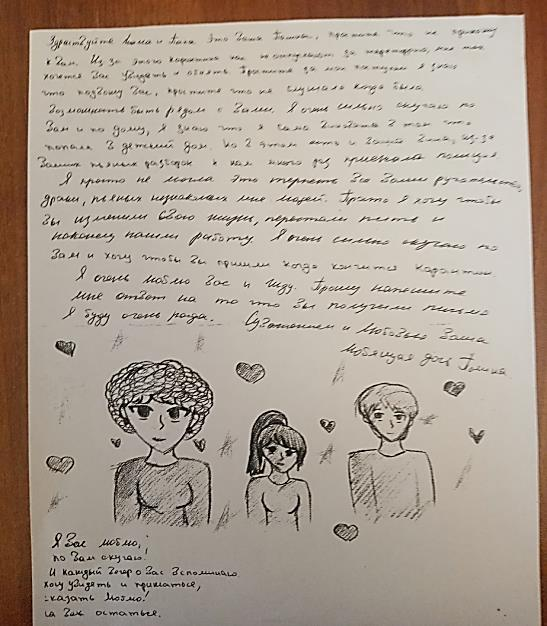 Здраствуйте Мама и Папа Это Ваша Полина, простите что не прихожу
к Вам. Из за этого карантина нас не отпускают за территорию, мне так
хочется Вас увидеть и обнять. Простите за мои поступки Я знаю
что подвожу Вас, простите что не слушала когда была
Возможность быть рядом с Вами. Я очень сильно скучаю по
Вам и по дому, Я знаю что я сама Виновата В том что
попала В детский дом. Но В этом есть и Вашей Вина, из-за
Ваших пьяных разборок к нам много раз приезжала полиция
Я просто не могла это терпеть Все Ваши ругательства,
драки, пьяных незнакомых мне людей. Просто Я хочу чтобы
Вы изменили Свою жизнь, перестали пить и
наконец нашли работу. Я очень сильно скучаю по
Вам и хочу чтобы Вы пришли когда кончится Карантин.
Я очень люблю Вас и жду. Прошу напишите
мне ответ на то что Вы получили письмо
Я буду очень рада. Суважением и Любовью Ваша
Любящая дочь Полина.
Я Вас люблю,
по Вам скучаю.
И каждый Вечер о Вас Вспоминаю
Хочу увидеть и прижаться,
сказать Люблю!
на Век остаться.